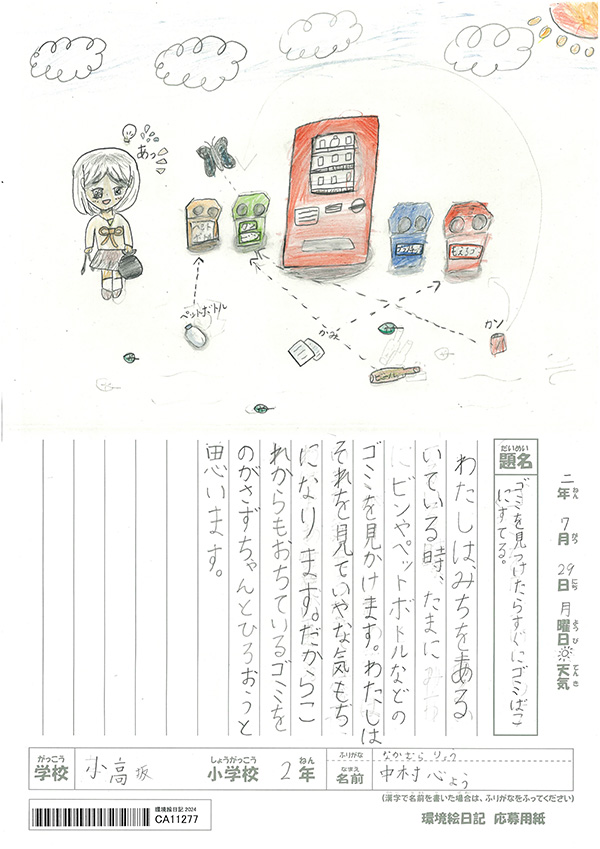 あっ
ペットボトル
ペットボトル
かみ
カン
ビール
もえるゴミ
二年 7月 29日 月曜日 天気
ねん がつ にち ようび てんき
だいめい
題名
ゴミを見つけたらすぐにゴミばこ
にすてる。
わたしは、みちをある
いている時、たまに
にビンやペットボトルなどの
ゴミを見かけます。わたしは
それを見ていやな気もち
になります。だからこ
れからもおちているゴミを
のがさずちゃんとひろおうと
思います。
がっこう
学校
小高坂
しょうがっこう
小学校
2
ねん
年
ふりがな
なかむら
なまえ
名前
中村 心
(漢字で名前を書いた場合は、ふりがなをふってください)
環境絵日記 2024
CA11277
環境絵日記 応募用紙